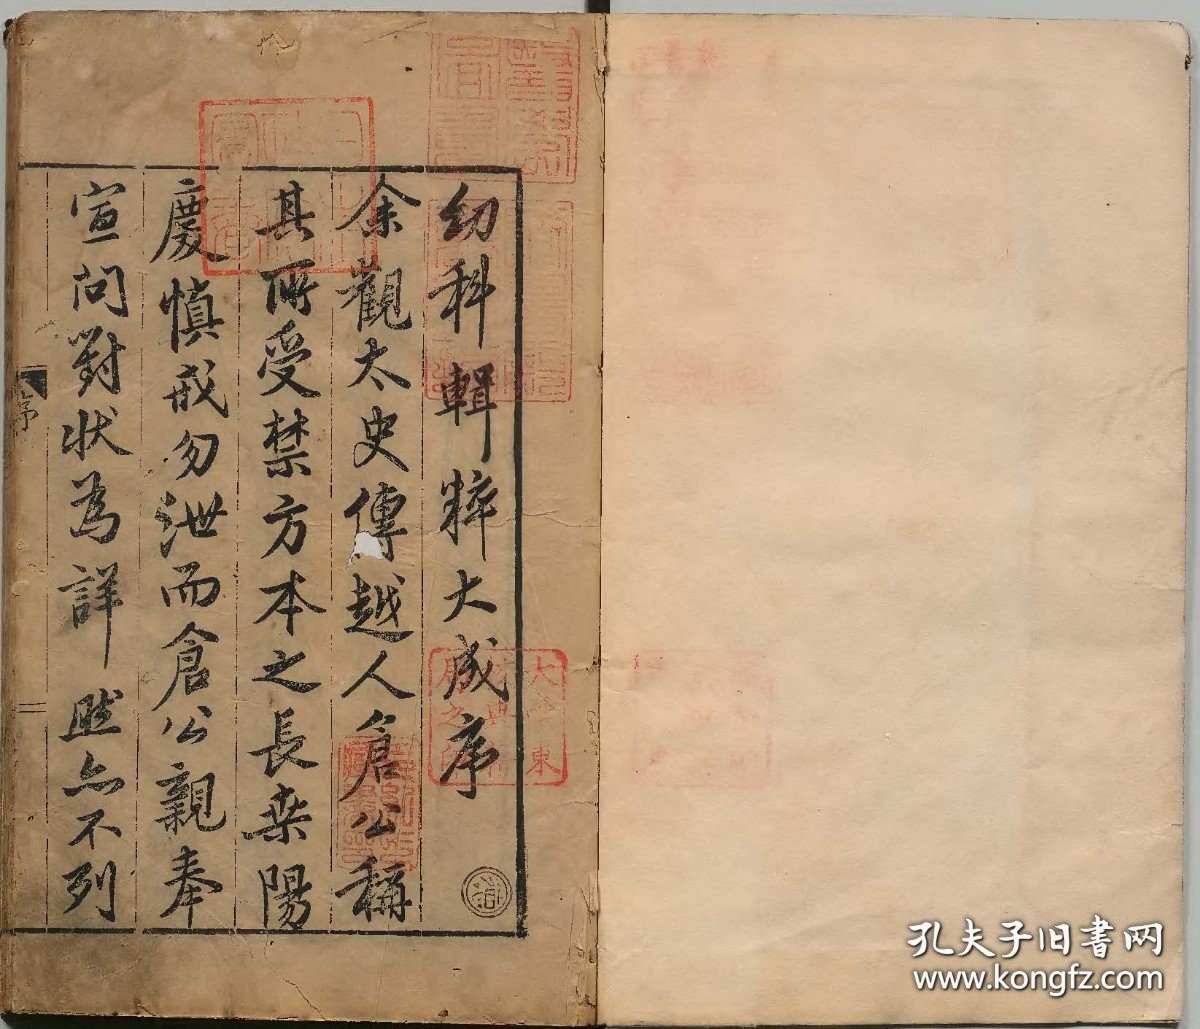 幼科輯粹大成序
余觀太史傳越人倉公稱
其所受禁方本之長桑陽
慶慎戒勿泄而倉公親奉
宣問對狀為詳然亦不列
序
孔夫子旧書网
www.kongfz.com